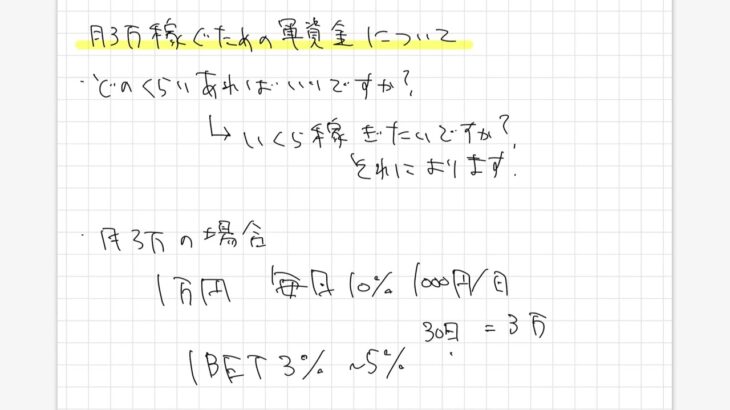 月3万稼ぐための軍資金について
・どのくらいあればいいですか?
↳いくら稼ぎたいですか?
それによります.
・月3万の場合
1万円 毎日10% 1000円/日
30日 = 3万
1BET 3% ~5%